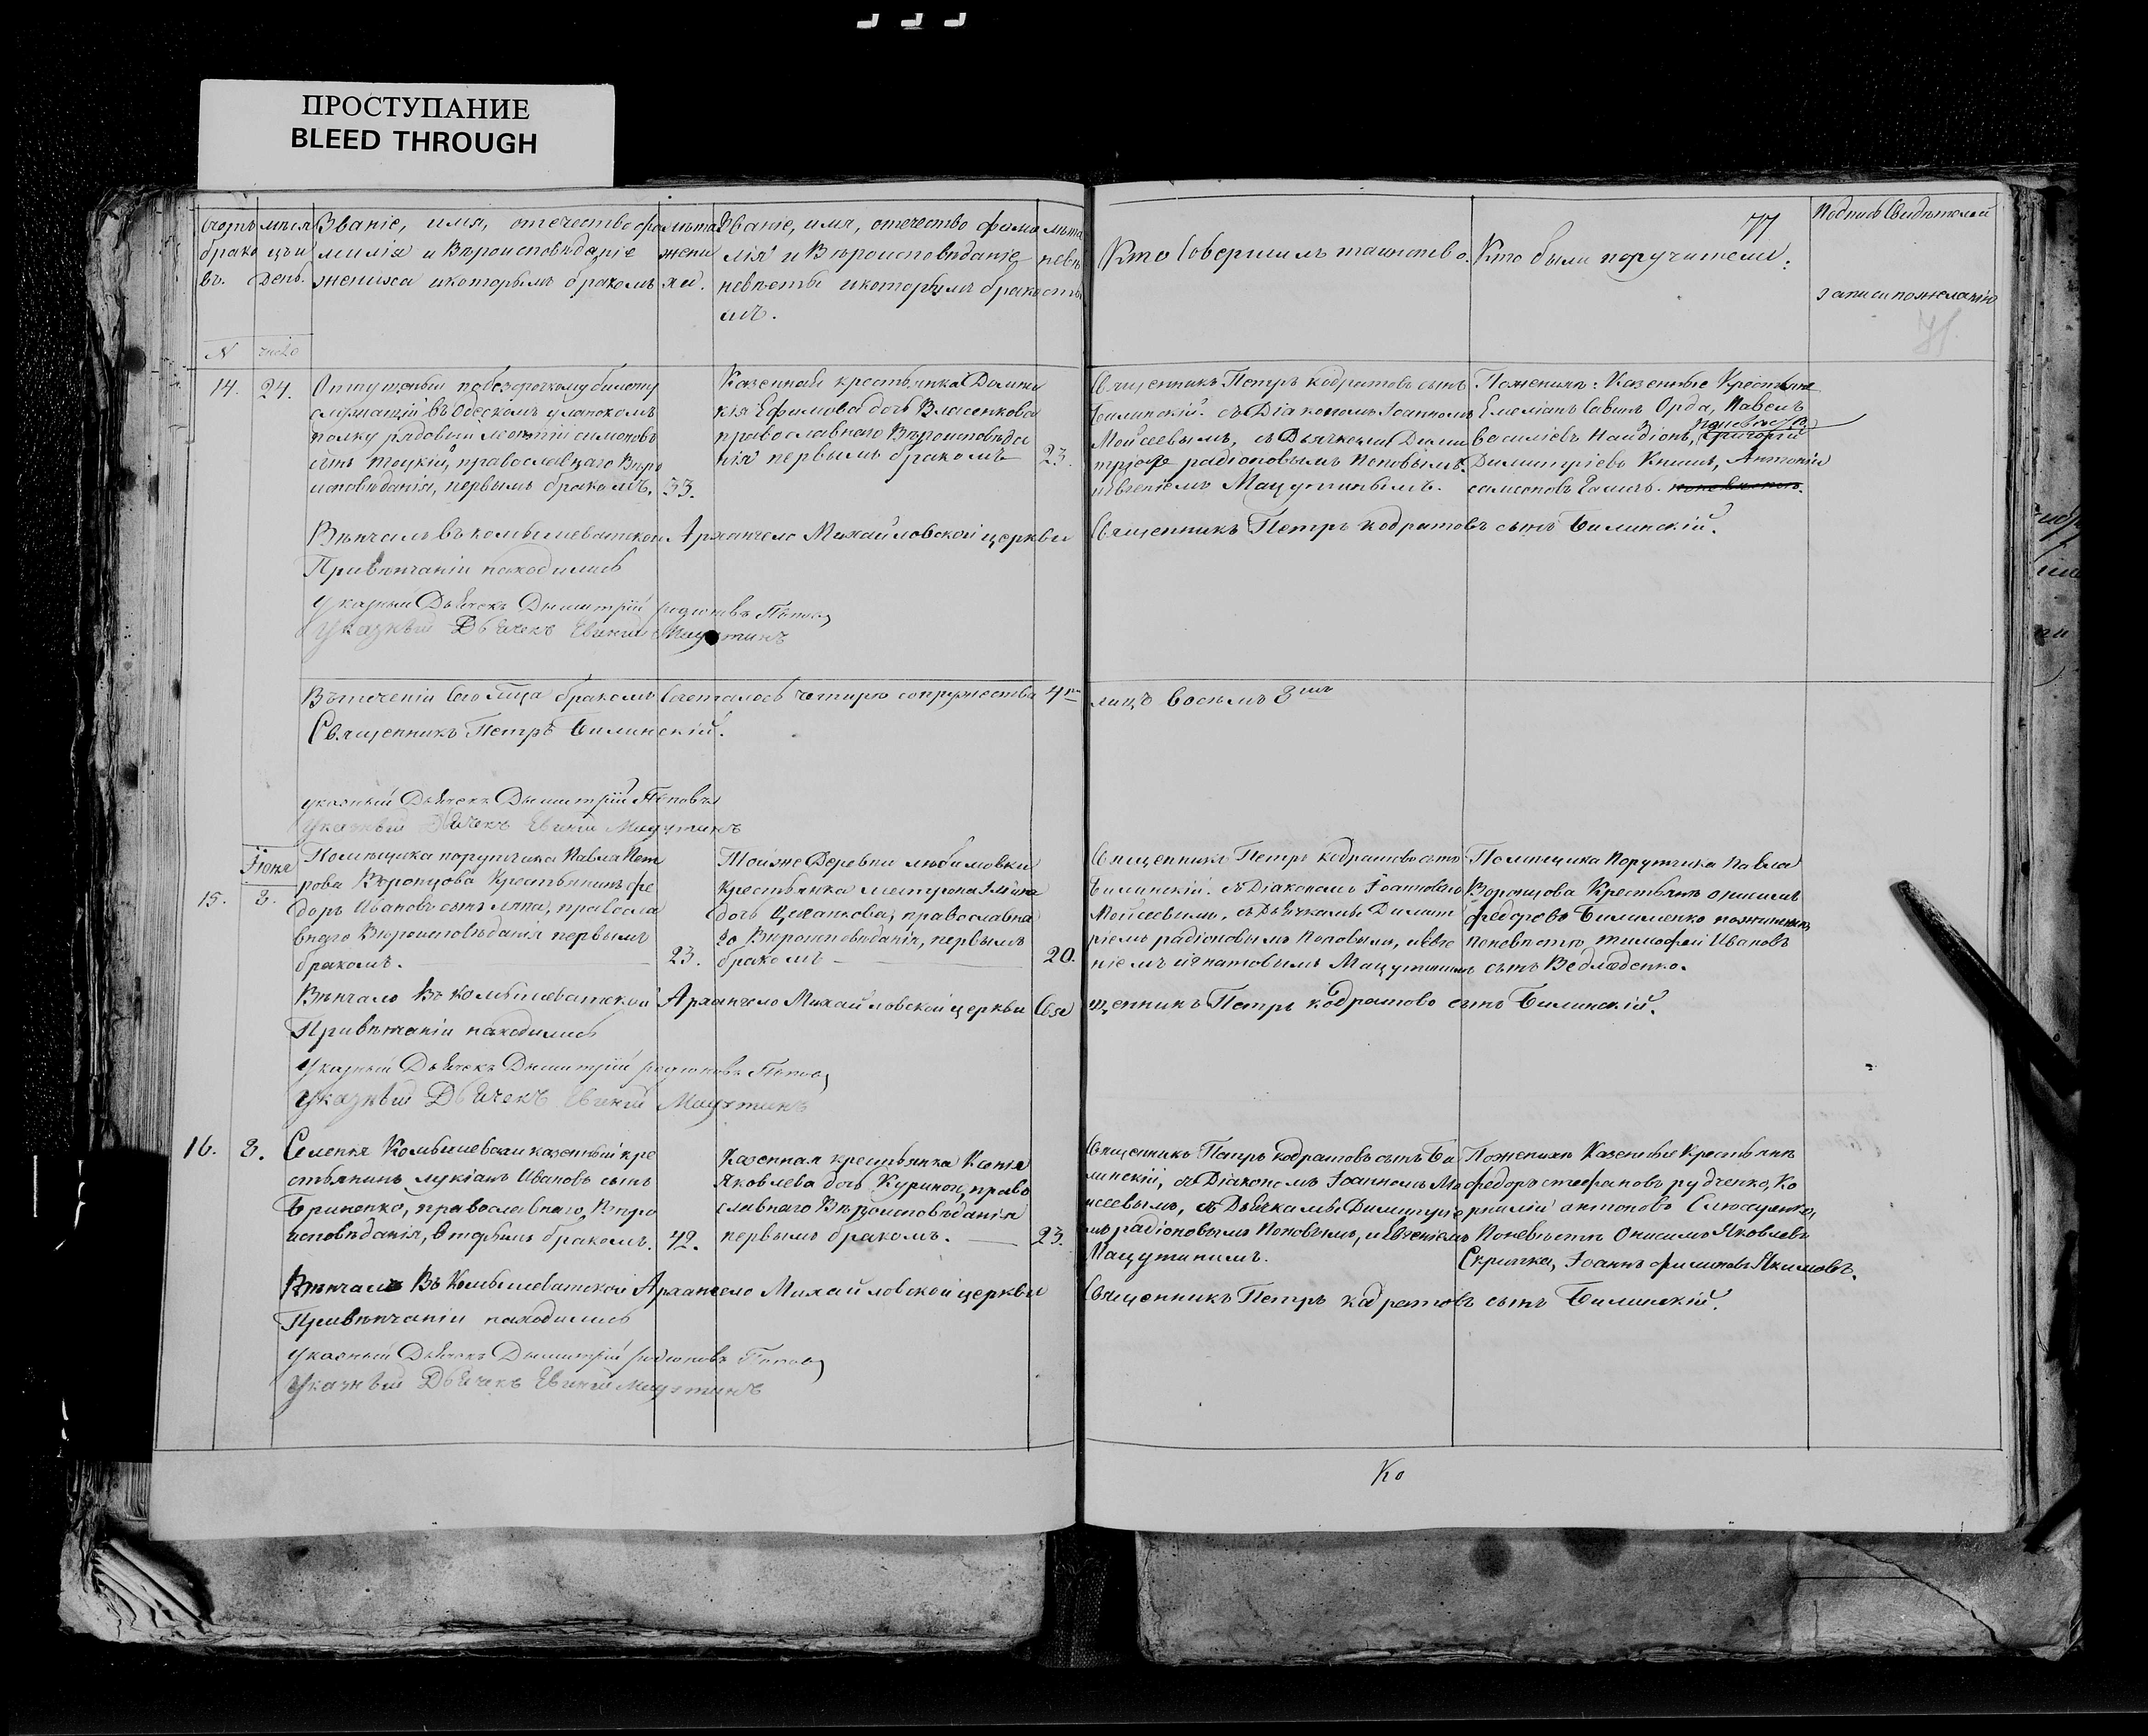 ПРОСТУПАНИЕ
BLEED THROUGH
Счетъ
брако
въ.
N
мѣся
цъ и
день.
число
Званіе, имя, отечество фа
милія и Вѣроисповѣданіе
жениха и которымъ бракомъ
лѣта
жени
ха.
Званіе, имя, отечество фами
лія и Вѣроисповѣданіе
невѣсты и которымъ брако
мъ.
лѣта
невѣ
сты
Кто Совершилъ таинство.
77
Кто были поручители:
Подпись Свидѣтелей
записи по желанію
14.
24.
Отпущеный по безсрочному билету
служащій въ Одескомъ уланскомъ
полку рядовый леонтій симоновъ
сынъ Тоцкій, православнаго Вѣро
исповѣданія, первымъ бракомъ.
33.
Казенная крестьянка Домни
кія Ефимова дочь Власенкова
православнаго Вѣроисповѣда
нія первымъ бракомъ
23.
Священникъ Петръ кодратовъ сынъ
Билинскій. съ Діакономъ Іоанномъ
Моисеевымъ, съ Дьячками Дими
тріемъ радіоновымъ Поповымъ.
и Евгеніемъ Мацутинымъ.
По женихѣ: Казенные Крестьяне
Емеліанъ Савинъ Орда, Павелъ
василіевъ Григорій
Димитріевъ Книшъ, Антоній
самсоновъ
Вѣнчалъ въ комышеватской Архангело Михайловской церкви Священникъ Петръ кодратовъ сынъ Билинскій.
При вѣнчаніи находились
Указный Дьячекъ Дымитрій родионовъ Поповъ
Указный Дьячекъ Евгеній Мацутинъ
Въ теченіи Сего Мца бракомъ Сочеталось четыре сопружества 4 лицъ восемъ 8
Священникъ Петръ Билинскій.
указный Дьячекъ Дымитрій Поповъ
Указный Дьячекъ Евгеній Мацутинъ
Іюня
15.
3.
Помѣщика порутчика Павла Пет
рова Воронцова Крестьянинъ фе
доръ Ивановъ сынъ правосла
внаго Вѣроисповѣданія первымъ
бракомъ.
23.
Тойже Деревни любимовки
крестьянка метрона
дочь православна
го Вѣроисповѣданія, первымъ
бракомъ
20.
Священникъ Петръ кодратовъ сынъ
Билинскій. съ Діакономъ Іоанномъ
Моисеевымъ, съ Дьячками Димит
ріемъ радіоновымъ Поповымъ, и Евге
ніемъ игнатовымъ Мацутинымъ
Помѣщика Порутчика Павла
Воронцова Крестьянъ онисимъ
федоровъ Билименко по женихѣ,
по невѣстѣ тимофей Ивановъ
сынъ Ведмеденко.
Вѣнчалъ Въ Комышеватской Архангело Михайловской церкви Свя щенникъ Петръ кодратовъ сынъ Билинскій.
При вѣнчаніи находились
Указный Дьячекъ Дымитрій родионовъ Поповъ
Указный Дьячекъ Евгеній Мацутинъ
16.
3.
Селенія Комышевахи казенный кре
стьянинъ лукіанъ Ивановъ сынъ
Гриненко, православнаго Вѣро
исповѣданія, Вторымъ бракомъ.
42.
Казенная крестьянка Ксенія
Яковлева дочь Куриной, право
славнаго Вѣроисповѣданія
первымъ бракомъ.
23.
Священникъ Петръ кодратовъ сынъ Би
линскій, съ Діакономъ Іоанномъ Мо
исеевымъ, съ Дьячками Димитріе
мъ радіоновымъ Поповымъ, и Евгеніемъ
Мацутинымъ.
По женихѣ Казенные Крестьяне
федоръ стефановъ рудченко, Ко
рнилій антоновъ Слюсаренко,
По невѣстѣ Онисимъ Яковлевъ
Скрипка, Іоаннъ филиповъ Якимовъ.
Вѣнчалъ Въ Комышеватской Архангело Михайловской церкви Священникъ Петръ кодратовъ сынъ Билинскій.
При вѣнчаніи находились
указный Дьячекъ Дымитрій родионовъ Поповъ
Указный Дьячекъ Евгеній Мацутинъ
Ко